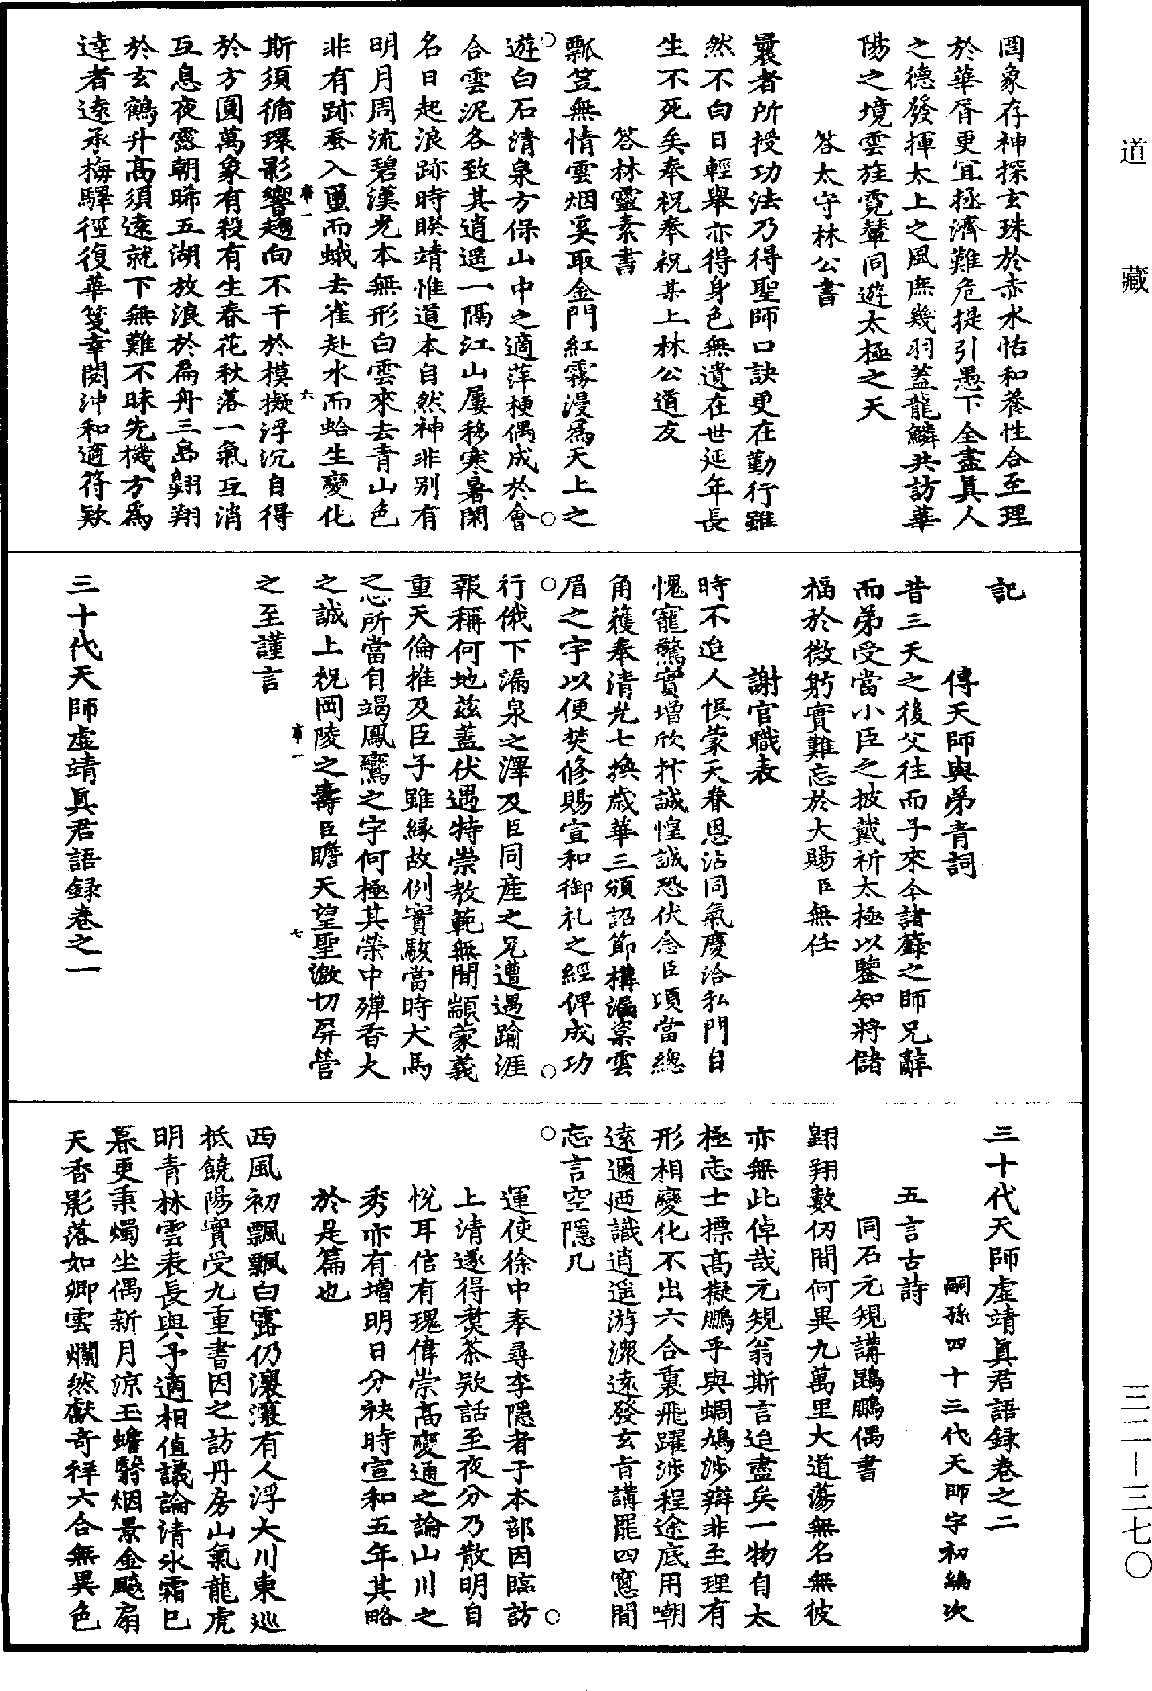 道藏
罔象存神探玄珠於赤水怡和養性合至理
於華胥更宜極濟難危提引愚下全盡真人
之德發揮太上之風庶幾羽蓋龍鱗共訪華
陽之境雲旌霓輦同遊太極之天
答太守林公書
曩者所授功法乃得聖師口訣更在勤行雖
然不白日輕舉亦得身色無遺在世延年長
生不死矣奉祝奉祝某上林公道友
答林靈素書
瓢笠無情雲烟奚取金門紅霧漫為天上之
遊白石清泉方保山中之適萍梗偶成於會
合雲泥各致其逍遥一隔江山屢移寒暑閑
名日起浪跡時睽靖惟道本自然神非别有
明月周流碧漢光本無形白雲來去青山色
非有跡蚕入䖝而蛾去雀赴水而蛤生變化
斯須循環影響趨向不干於模擬浮沉自得
於方圓萬象有殺有生春花秋落一氣互消
互息夜露朝晞五湖放浪於扁舟三島翱翔
於玄鶴升高須遠就下無難不昧先機方為
達者遠承梅驛徑復華箋幸閱沖和適符欵
記
傳天師與弟青詞
昔三天之後父往而子來今諸薛之師兄辭
而弟受當小臣之披戴祈太極以鑒知將儲
福於微躬實難忘於大賜臣無任
謝官職表
時不迨人惧蒙天眷恩沾同氣慶洽私門自
愧寵驚實增欣抃誠惶誠恐伏念臣頃當總
角獲奉清光七換歲華三頒詔節構漏㮚雲
眉之宇以便焚修賜宣和御札之經俾成功
行俄下漏泉之澤及臣同産之兄遭遇踰涯
報稱何地兹蓋伏遇特崇教範無間顓蒙義
重天倫推及臣子雖緣故例實駭當時犬馬
之心所當自竭鳳鸞之字何極其榮中殫香火
之誠上祝岡陵之壽臣瞻天望聖激切屏營
之至謹言
三十代天師虛靖真君語録卷之一
三十代天師虛靖真君語録卷之二
嗣孫四十三代天師宇初編次
五言古詩
同石元規講鷃鵬偶書
翱翔數仞間何異九萬里大道蕩無名無彼
亦無此倬哉元規翁斯言迨盡矣一物自太
極志士標高擬鵬乎與蜩鳩涉辯非至理有
形相變化不出六合裏飛躍涉程途底用嘲
遠邇廼識逍遥游深遠發玄旨講罷四窓間
忘言空隱几
運使徐中奉尋李隱者于本部因臨訪
上清遂得煑茶欵話至夜分乃散明自
悅耳信有瑰偉崇高變通之論山川之
秀亦有增明日分袂時宣和五年其略
於是篇也
西風初飄飄白露仍瀼瀼有人浮大川東巡
柢饒陽實受九重書因之訪丹房山氣龍虎
明青林雲表長與予適相值議論清氷霜已
暮更秉燭坐偶新月涼玉蟾翳烟景金飈扇
天香影落如卿雲爛然獻奇祥六合無異色
三二—三七〇